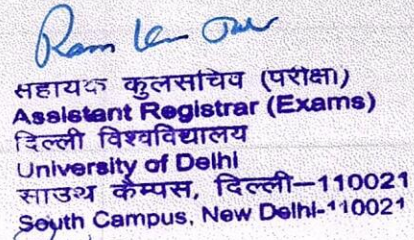 सहायक कुलसचिव (परीक्षा)
Assistant Registrar (Exams)
दिल्ली विश्वविद्यालय
University of Delhi
साउथ कैम्पस, दिल्ली–110021
South Campus, New Delhi-110021